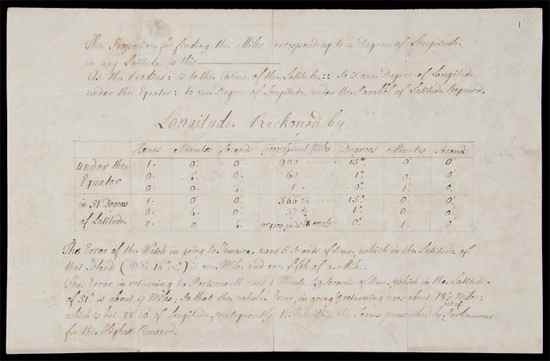 1
The Proportion for finding the Miles corresponding to a Degree of Longitude
in any Latitude is this
As the Radius : is to the Cosine of the Latitude :: so is one Degree of Longitude
under the Equator : to one Degree of Longitude under the Parallel of Latitude required.
Longitude Reckoned by
Hours Minutes Seconds Miles Degrees Minutes Seconds
under the 1. 0. 0. 900 15° 0. 0.
Equator 0. 4. 0. 60 1° 0. 0.
0. 0. 1. 0. 0.
in 51 Degrees 1. 0. 0. 566 15° 0. 0.
of Latitude 0. 4. 0. 37 1° 0. 0.
0. 0. 0. 1. 0.
The Error of the Watch in going to Jamaica was 5 Seconds of time, which in the Latitude of
that Island is one Mile and one fifth of a
The Error in returning to Portsmouth was 1 Minute Seconds of time, which in the Latitude
of 51° is about Miles, So that the whole Error, in going & returning was about 18 Miles
which is of Longitude, consequently within the Terms prescribed by Parliament
for the Highest Reward.